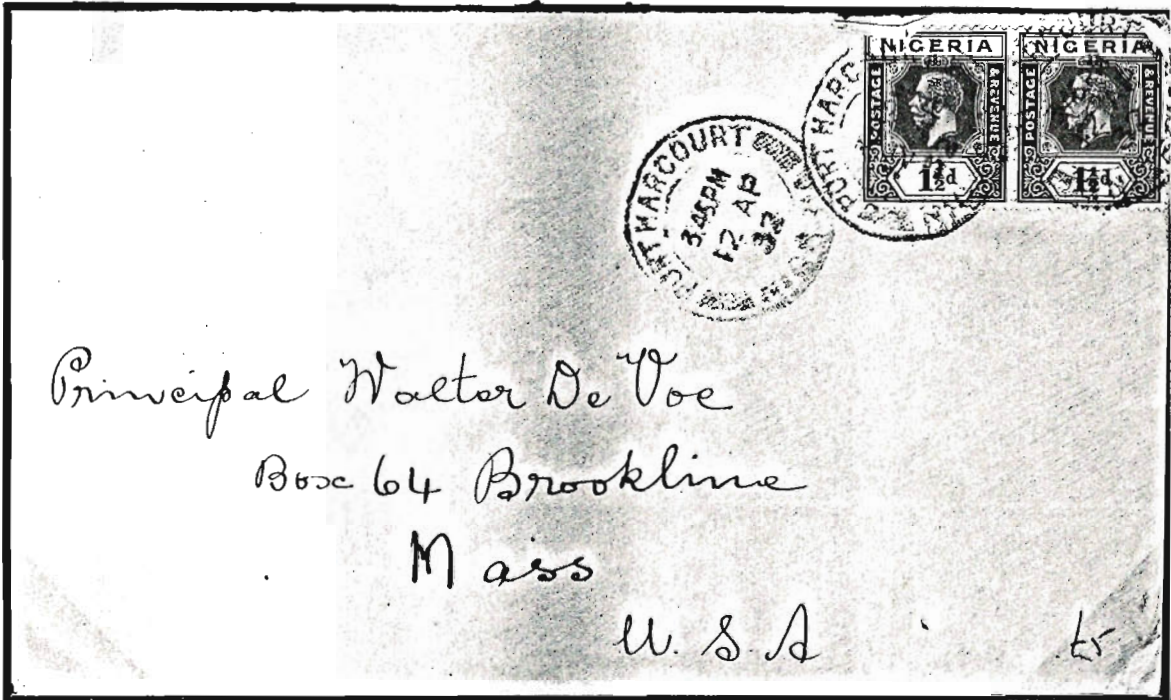 NIGERIA NIGERIA
POSTAGE & REVENUE POSTAGE & REVENUE
1½d 1½d
PORT HARCOURT
3.45PM
12 AP
32
PORT HARC
Principal Walter De Voe
Box 64 Brookline
Mass
U. S. A